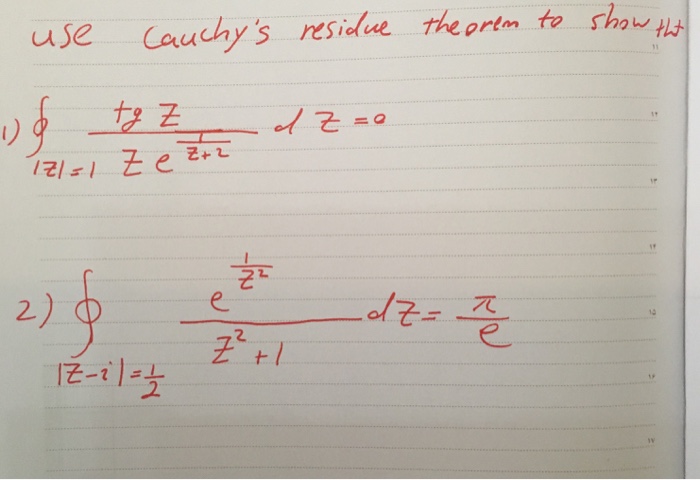 use Cauchy's residue theorem to show tht
1) ∮_{|z|=1} \frac{tg z}{z e^{\frac{1}{z+2}}} dz = 0
2) ∮_{|z-i|=\frac{1}{2}} \frac{e^{\frac{1}{z^2}}}{z^2+1} dz = \frac{π}{e}